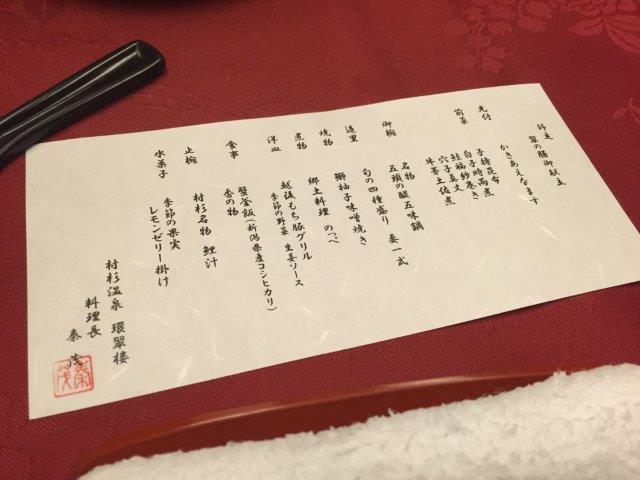 翠の膳御献立
先付
かきあえなます
前菜
子持昆布
白子時雨煮
鮭福紗巻き
穴子真丈
牛蒡土佐煮
御椀
名物
五頭の醍五味鍋
造里
旬の四種盛り 妻一式
焼物
鰤柚子味噌焼き
煮物
郷土料理 のっぺ
洋皿
越後もち豚グリル
季節の野菜 生姜ソース
食事
蟹釜飯(新潟県産コシヒカリ)
香の物
止椀
村杉名物 鯉汁
水菓子
季節の果実
レモンゼリー掛け
村杉温泉 環翠楼
料理長
秦 茂